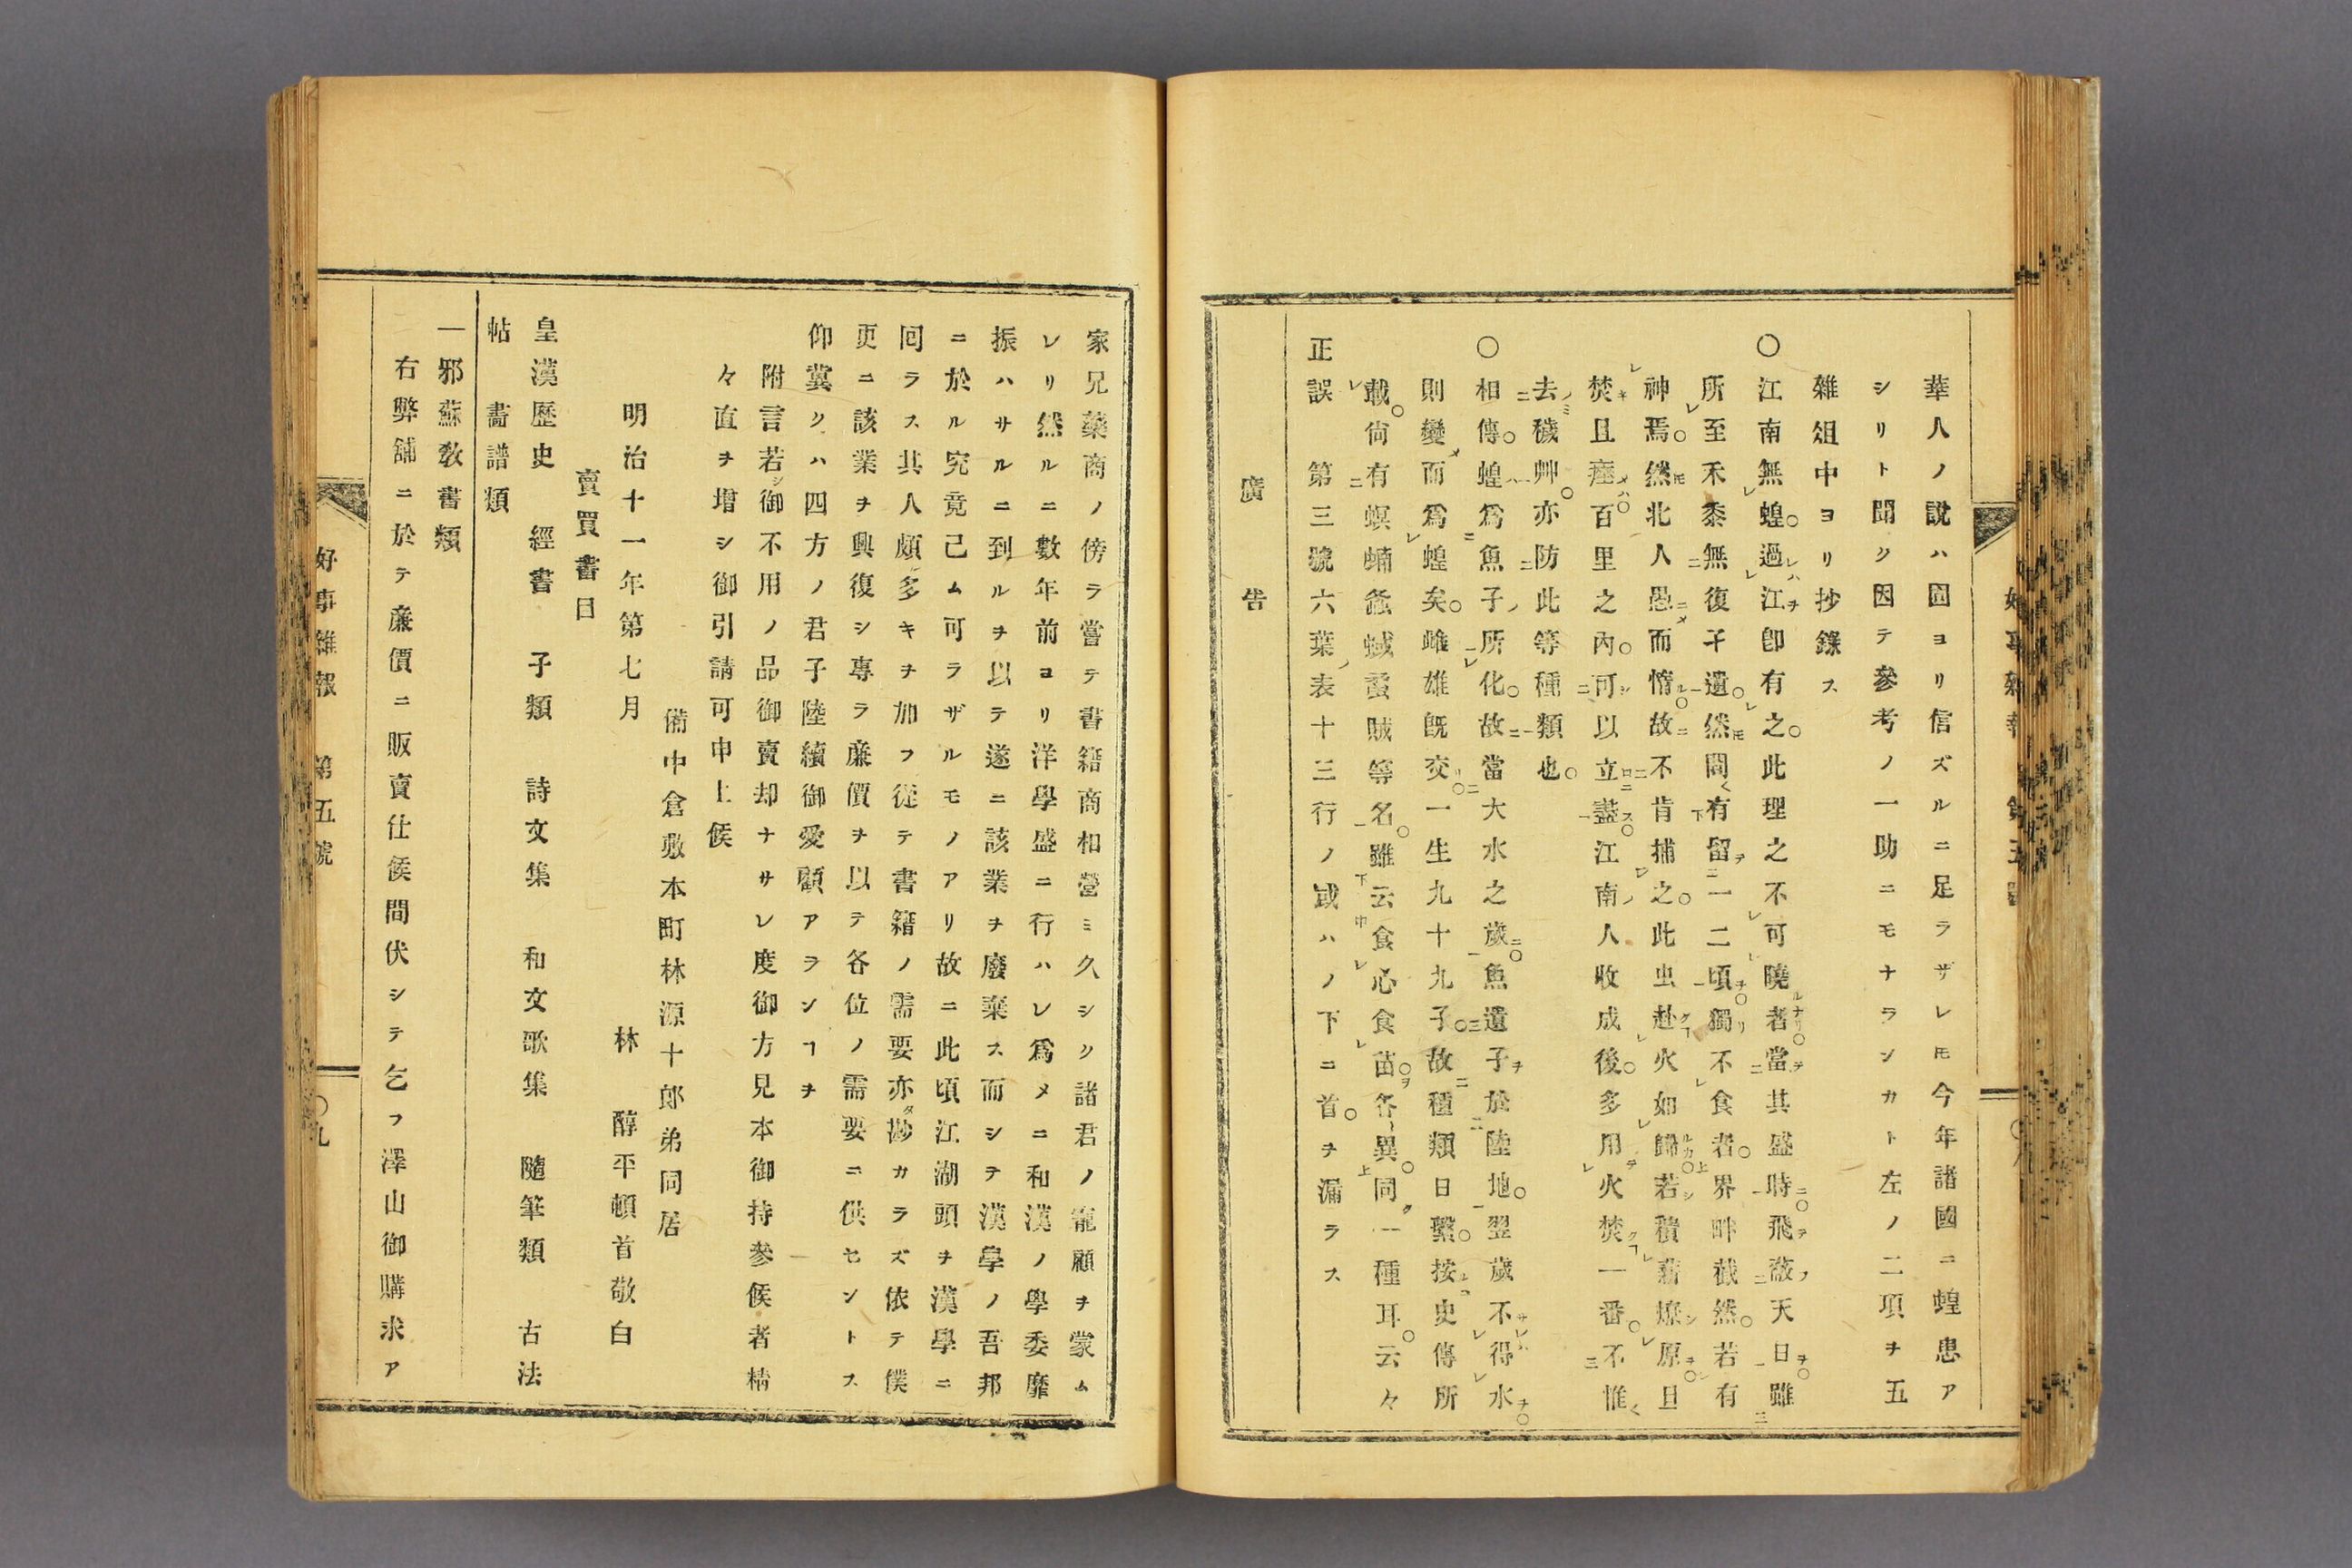 華人ノ說ハ固ヨリ信ズルニ足ラザレ𪜈今年諸國ニ蝗患ア
シリト聞ク因テ參考ノ一助ニモナランカト左ノ二項ヲ五
雜俎中ヨリ抄錄ス
〇江南無蝗過江卽有之此理之不可曉者當其盛時飛蔽天日雖
所至禾黍無復孑遺然間有留一二頃獨不食者界畔截然若有
神焉然北人愚而惰故不肯捕之此虫赴火如歸若積薪燎原且
焚且瘞百里之內可以立盡江南人收成後多用火焚一番不惟
去穢艸亦防此等種類也
〇相傳蝗爲魚子所化故當大水之歲魚遺子於陸地翌歲不得水
則變而爲蝗矣雌雄旣交一生九十九子故種類日繫按史傳所
載尙有螟蝻螽蜮蟊賊等名雖云食心食苗各異同一種耳云々
正誤　第三號六葉表十三行ノ或ハノ下ニ首ヲ漏ラス
廣告
家兄藥商ノ傍ラ當テ書籍商相營ミ久シク諸君ノ寵顧ヲ蒙ム
レリ然ルニ數年前ヨリ洋學盛ニ行ハレ爲メニ和漢ノ學委靡
振ハサルニ到ルヲ以テ遂ニ該業ヲ廢棄ス而シテ漢學ノ吾邦
ニ於ル究竟已ム可ラザルモノアリ故ニ此頃江湖頭ヲ漢學ニ
回ラス其人頗多キヲ加フ從テ書籍ノ需要亦尠カラズ依テ僕
更ニ該業ヲ興復シ專ラ廉價ヲ以テ各位ノ需要ニ供セントス
仰冀クハ四方ノ君子陸續御愛顧アランヿヲ
附言若シ御不用ノ品御賣却ナサレ度御方見本御持參候者精
々直ヲ增シ御引請可申上候
備中倉敷本町林源十郎弟同居
明治十一年第七月　林　醇平頓首敬白
賣買書目
皇漢歷史　經書　子類　詩文集　和文歌集　隨筆類　古法
帖　畵譜類
一邪蘇敎書類
右弊舖ニ於テ廉價ニ販賣仕候間伏シテ乞フ澤山御購求ア
好事雜報　第五號　〇九